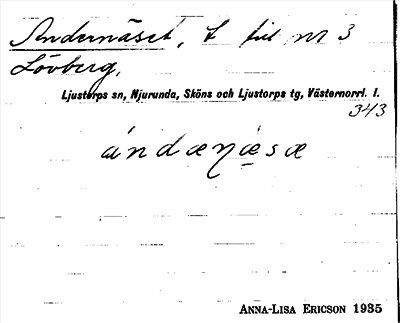 Andernäset, t till nr 3
Lövberg,
Ljustorps sn, Njurunda, Sköns och Ljustorps tg, Västernorrl. l.
343
ándæṇæsæ
ANNA-LISA ERICSON 1935